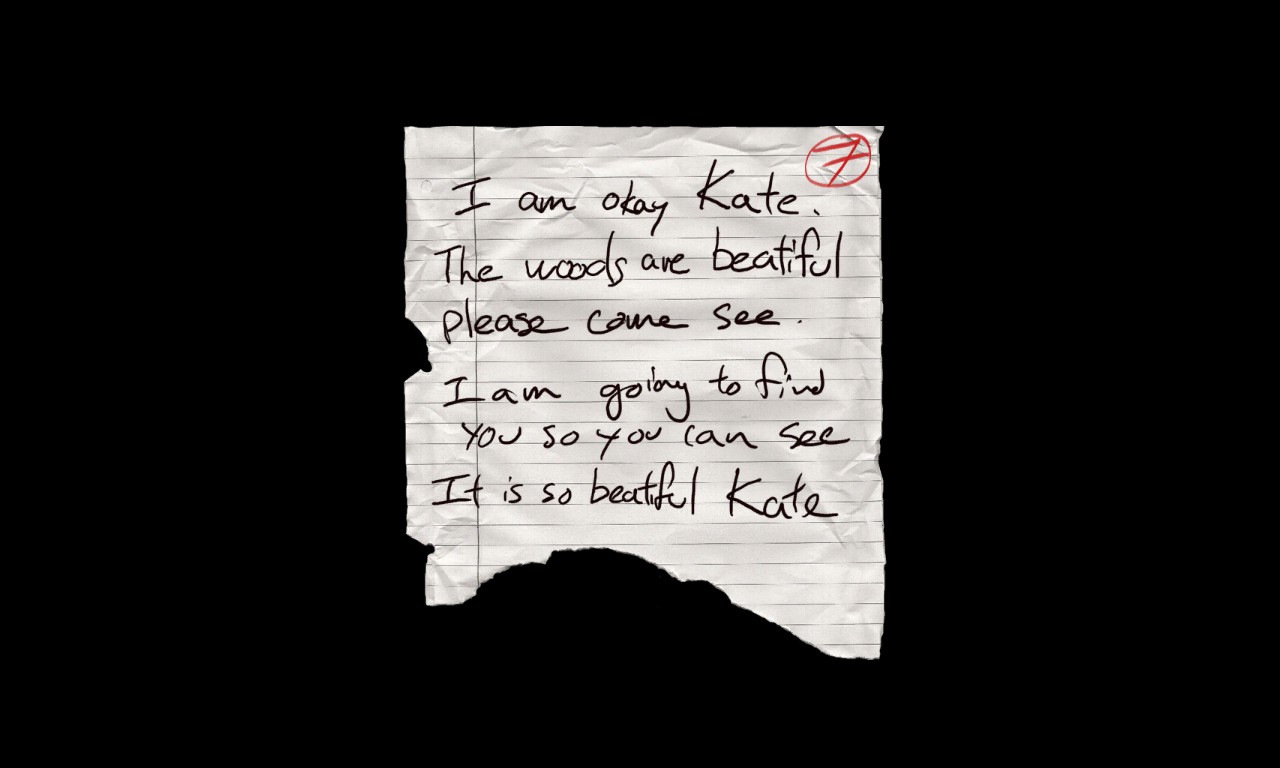 7
I am okay Kate.
The woods are beatiful
please come see.
I am going to find
you so you can see
It is so beatiful Kate